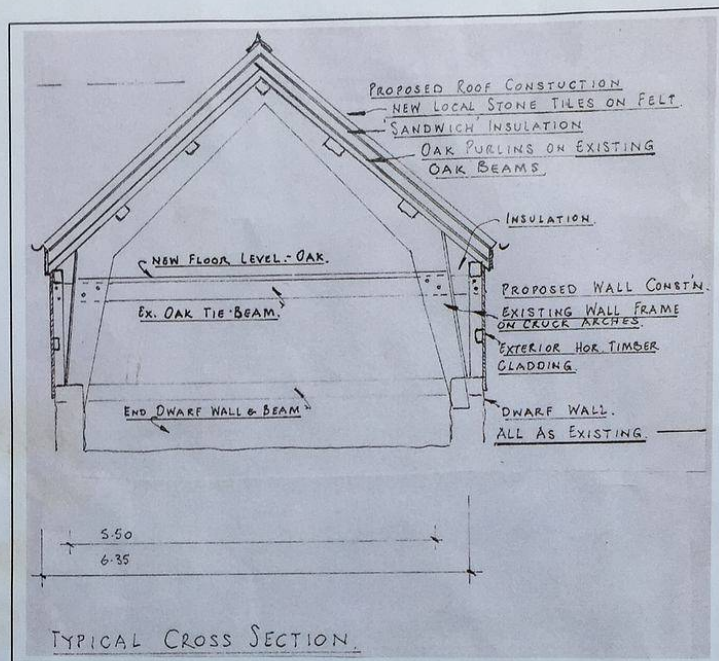 PROPOSED ROOF CONSTUCTION
NEW LOCAL STONE TILES ON FELT.
'SANDWICH' INSULATION
OAK PURLINS ON EXISTING
OAK BEAMS.
INSULATION.
NEW FLOOR LEVEL - OAK.
EX. OAK TIE BEAM.
PROPOSED WALL CONST'N.
EXISTING WALL FRAME
ON CRUCK ARCHES.
EXTERIOR HOR TIMBER
CLADDING.
END DWARF WALL & BEAM
DWARF WALL.
ALL AS EXISTING.
5.50
6.35
TYPICAL CROSS SECTION.